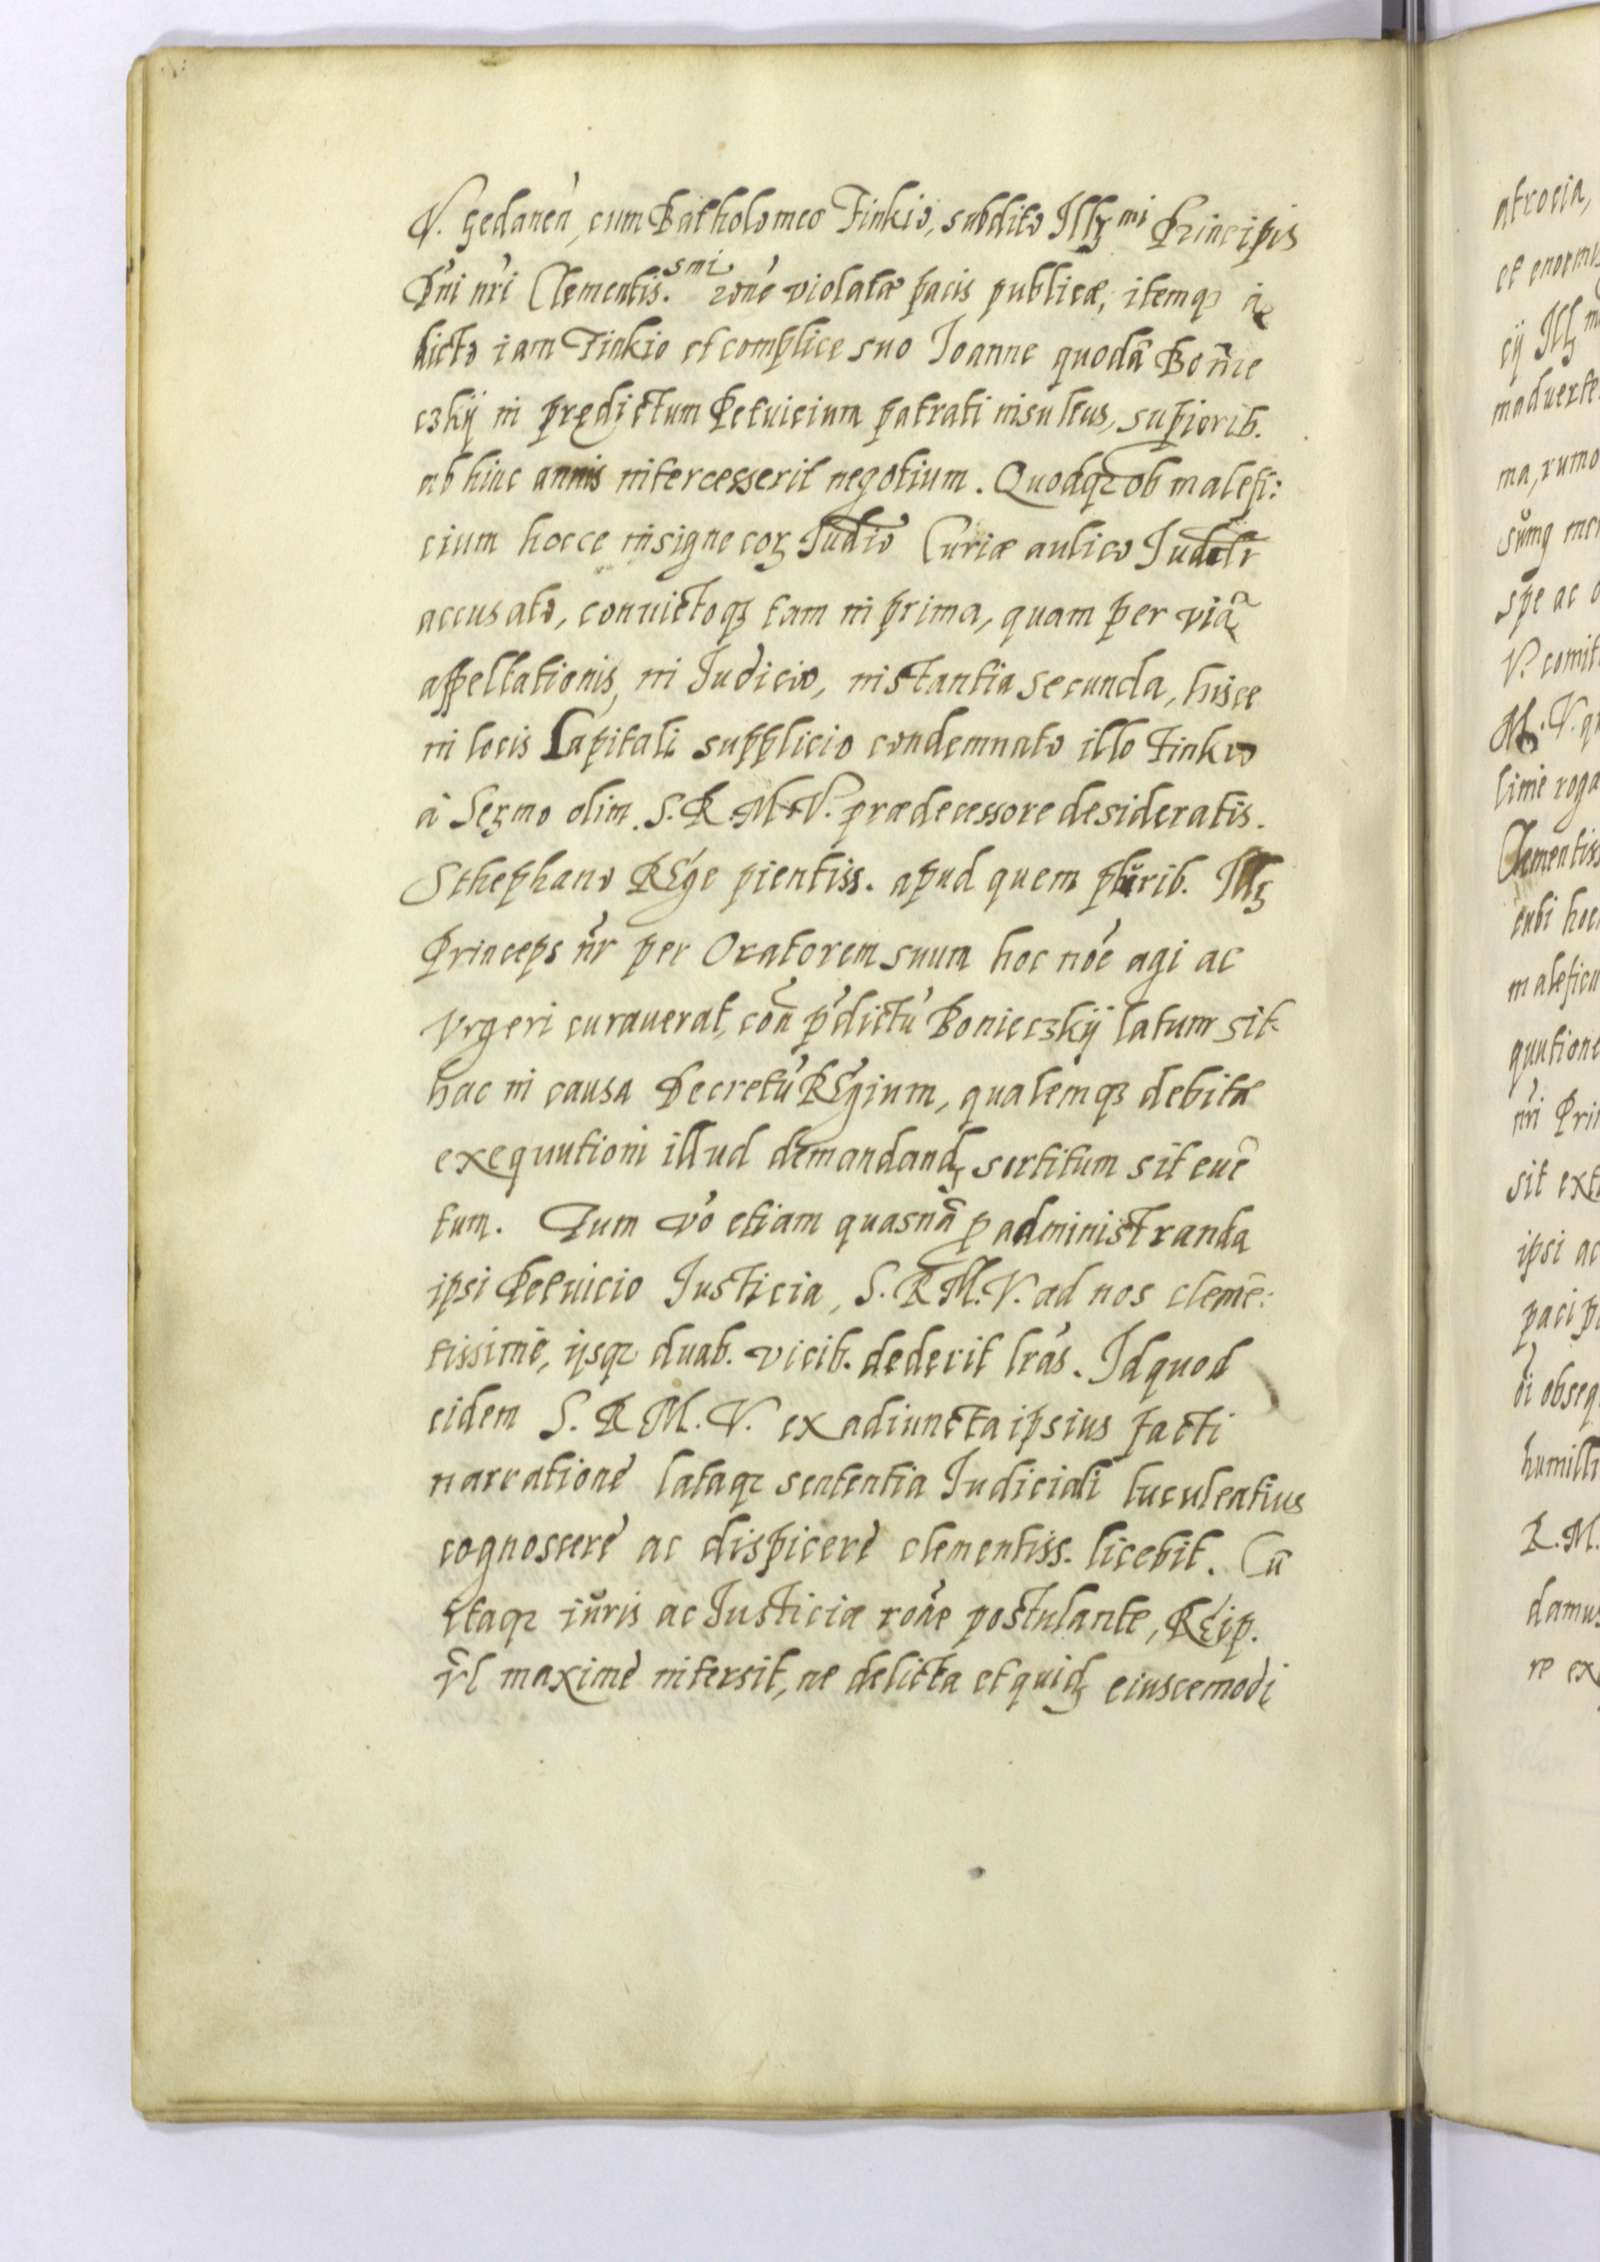 V. Gedaneń, cum Batholomeo Tinkio, subdito Illꝫmi Principis
Dni nri Clementis.smi rone violatæ pacis publicæ, itemqꝫ à
dicto iam Tinkio et complice suo Ioanne quodã Bonie
czkÿ in prędictum Petuicium patrati insultus, supiorib.
ab hinc annis intercesserit negotium. Quodqꝫ ob malefi:
cium hocce insigne corꝫ Iudio Curiæ aulico Iudtlr
accusato, conuictoqꝫ tam in prima, quam per viã
appellationis, in Iudicio, instantia secunda, hisce
in locis Capitali supplicio condemnato illo Tinkio
à Serꝫmo olim S. R. M. V. prædecessore desideratis.
Sthephano REge pientiss. apud quem plurib. Illꝫ
Princeps nr per Oratorem suum hoc noe agi ac
Vrgeri curauerat, con pdictũ Bonieczkÿ latum sit
hac in causa Decretũ REgium, qualemqꝫ debitæ
exequutioni illud demandandꝫ sortitum sit euẽ
tum. Tum vo etiam quasnã p administranda
ipsi Petuicio Iusticia, S. R M. V. ad nos clemẽ:
tissimè, ijsqꝫ duab. vicib. dederit lras. Id quod
eidem S. R M. V. ex adiuncta ipsius facti
narratione lataqꝫ sententia Iudiciali luculentius
cognoscere ac dispicere clementiss. licebit. Cũ
Itaqꝫ iuris ac Iusticiæ rone postulante, REip.
vl maximè intersit, ne delicta et quidꝫ eiuscemodi
atrocia,
et enorm
cÿ Illꝫ
maduerte
ma, rumo
spe ac
V. comit
M. V. q
lime roga
Clementiss
cubi hoc
malefic
quutione
nri Pri
sit ext
ipsi ac
paci p
oi obseq
humilli
R. M.
damus
re ex